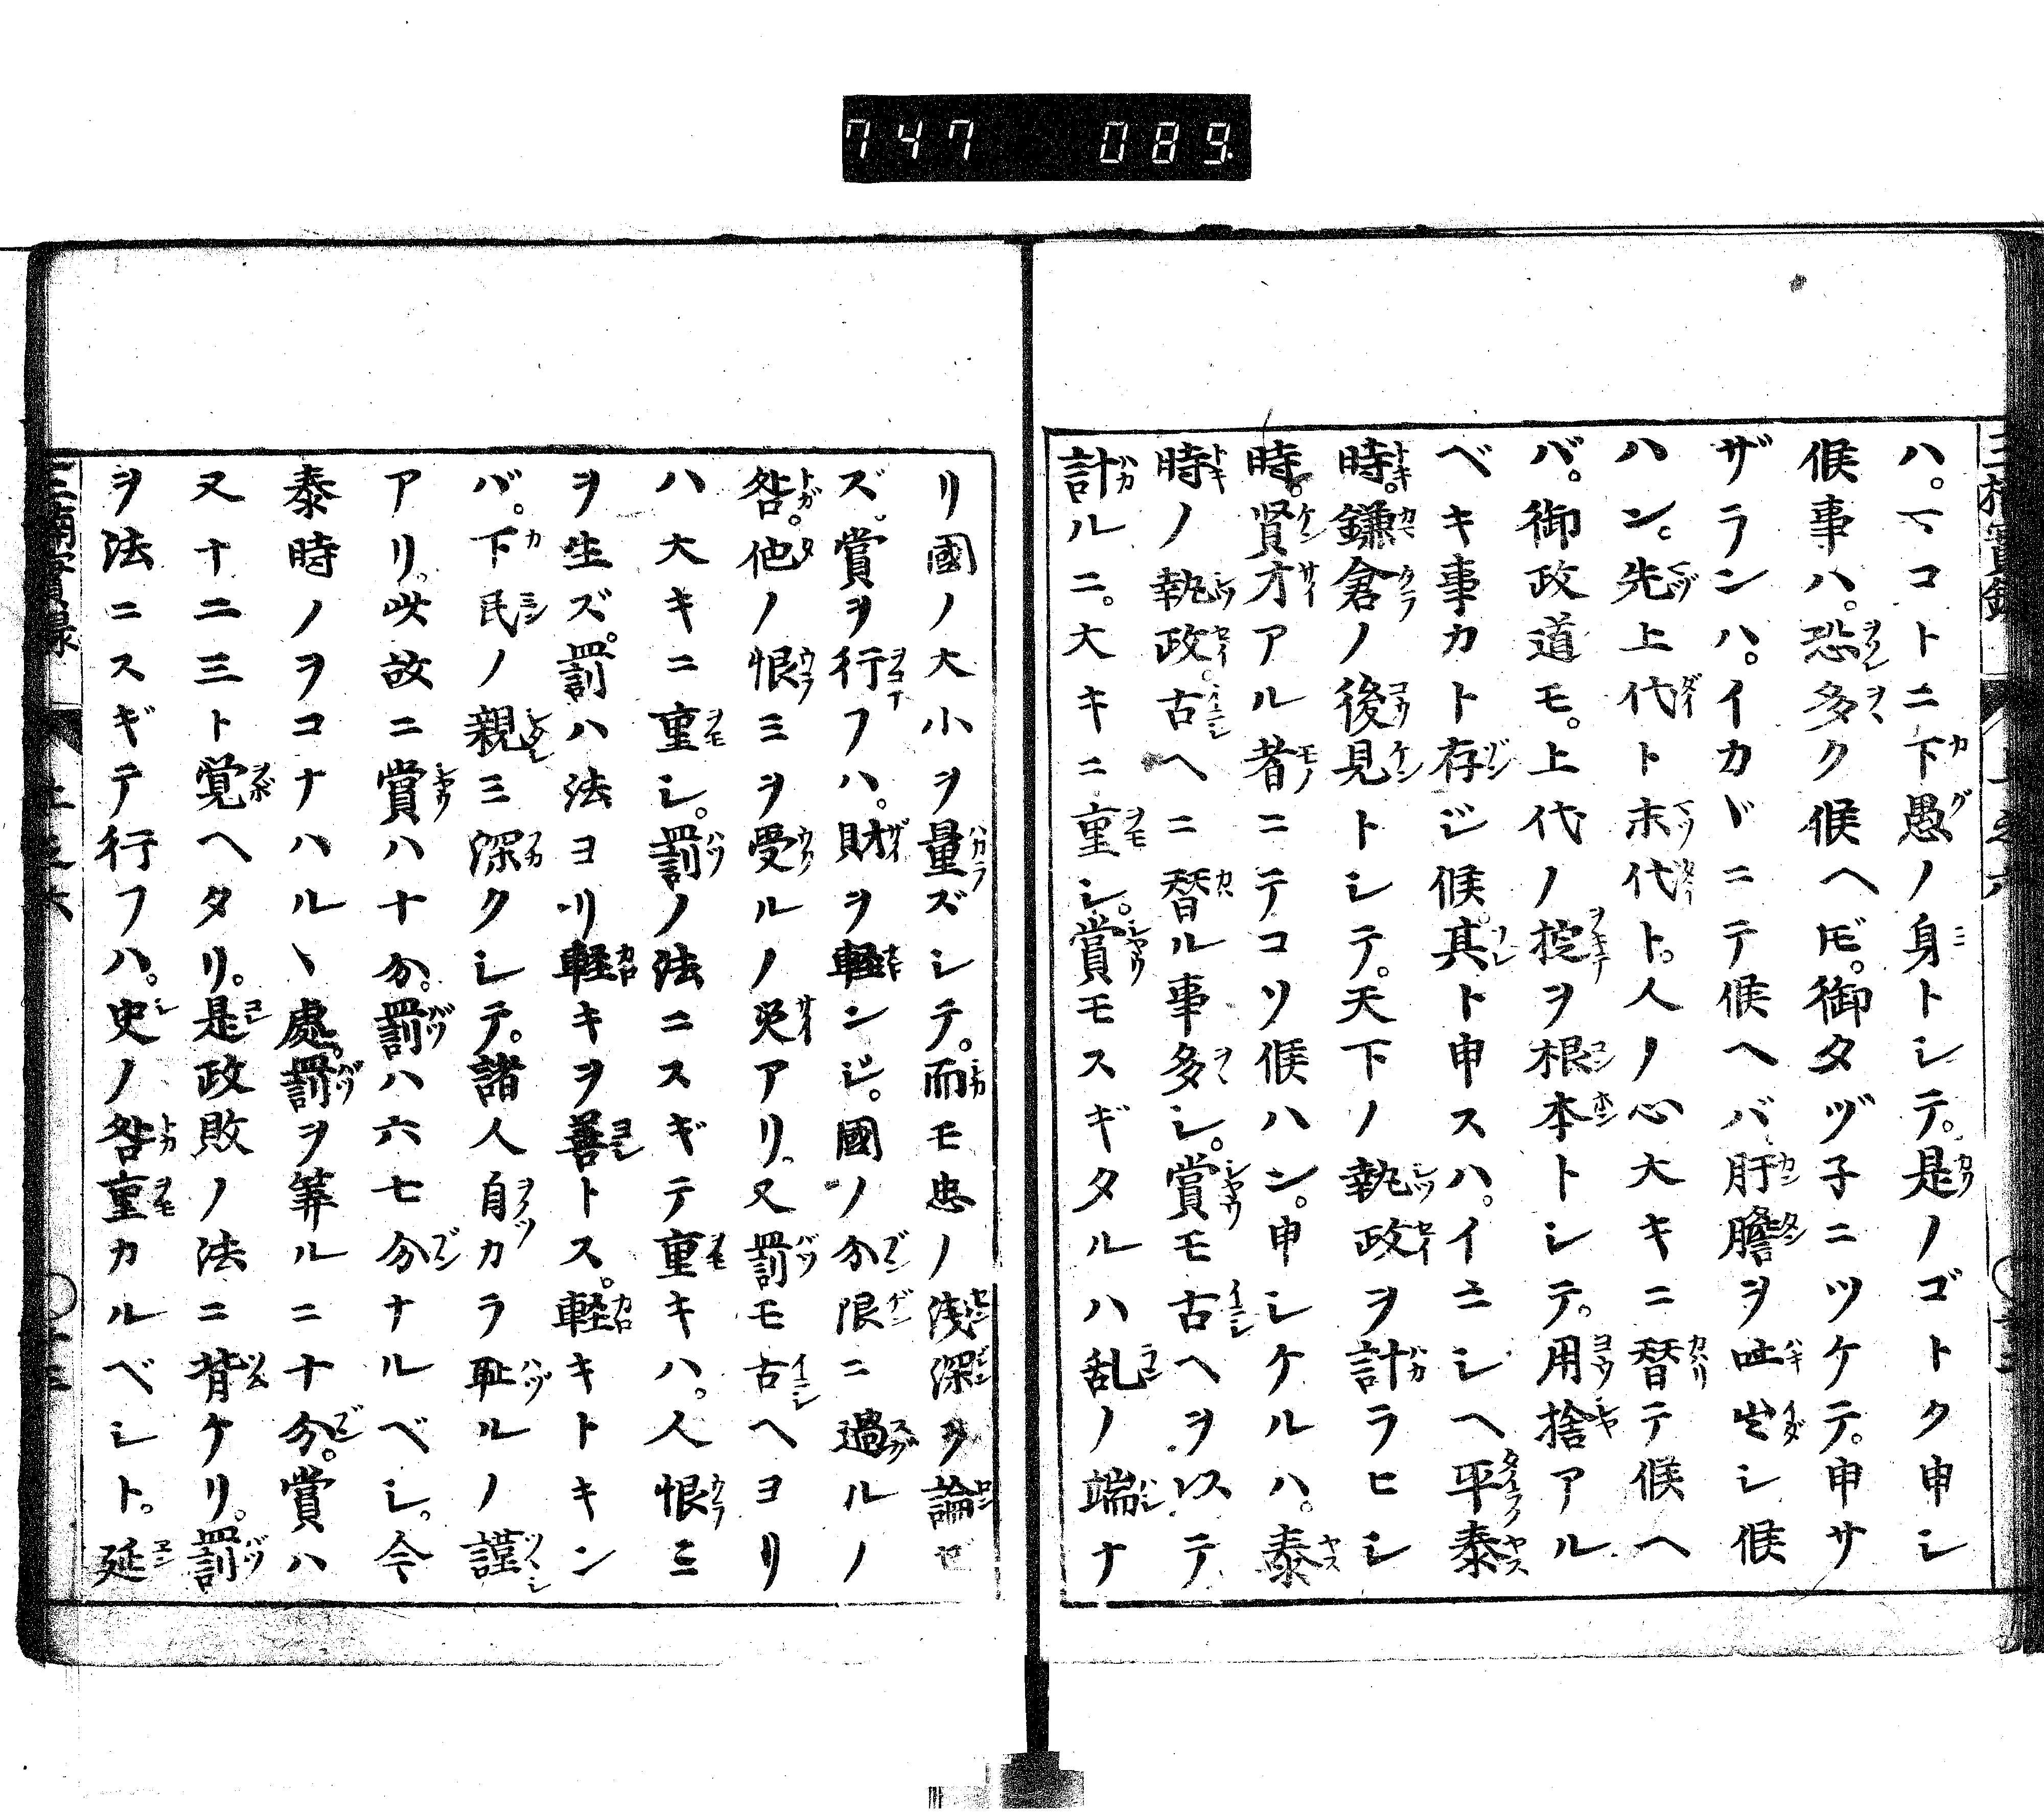 747 089
ハ。マコトニ下愚ノ身トシテ。是ノゴトク申シ
候事ハ。恐多ク候ヘ𪜈。御タヅ子ニツケテ。申サ
ザランハ。イカヾニテ候ヘバ肝膽ヲ吐出シ候
ハン。先上代ト末代ト。人ノ心大キニ替テ候ヘ
バ。御政道モ。上代ノ掟ヲ根本トシテ。用捨アル
ベキ事カト存ジ候。其ト申スハ。イニシヘ平泰
時。鎌倉ノ後見トシテ。天下ノ執政ヲ計ラヒシ
時。賢才アル者ニテコソ候ハン。申シケルハ。泰
時ノ執政。古ヘニ替ル事多シ。賞モ古ヘヲ以テ
計ルニ。大キニ重シ。賞モスギタルハ乱ノ端ナ
リ國ノ大小ヲ量ズシテ。而モ忠ノ浅深ヲ論セ
ズ。賞ヲ行フハ。財ヲ軽ンジ。國ノ分限ニ過ルノ
咎。他ノ恨ミヲ受ルノ災アリ。又罰モ古ヘヨリ
ハ大キニ重シ。罰ノ法ニスギテ重キハ。人恨ミ
ヲ生ズ。罰ハ法ヨリ軽キヲ善トス。軽キトキン
バ。下民ノ親ミ深クシテ。諸人自カラ耻ルノ謹
アリ。此故ニ賞ハ十分。罰ハ六七分ナルベシ。今
泰時ノヲコナハルヽ處。罰ヲ筭ルニ十分。賞ハ
又十二三ト覚ヘタリ。是政敗ノ法ニ背ケリ。罰
ヲ法ニスギテ行フハ。史ノ咎重カルベシト。延